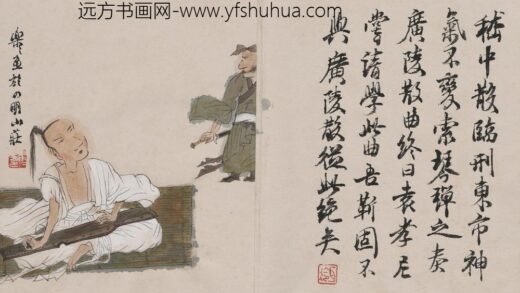 远方书画网-www.yfshuhua.com
嵇中散臨刑東市神
氣不變索琴彈之奏
廣陵散曲終曰袁孝尼
嘗請學此曲吾靳固不
與廣陵散從此絕矣
明山莊